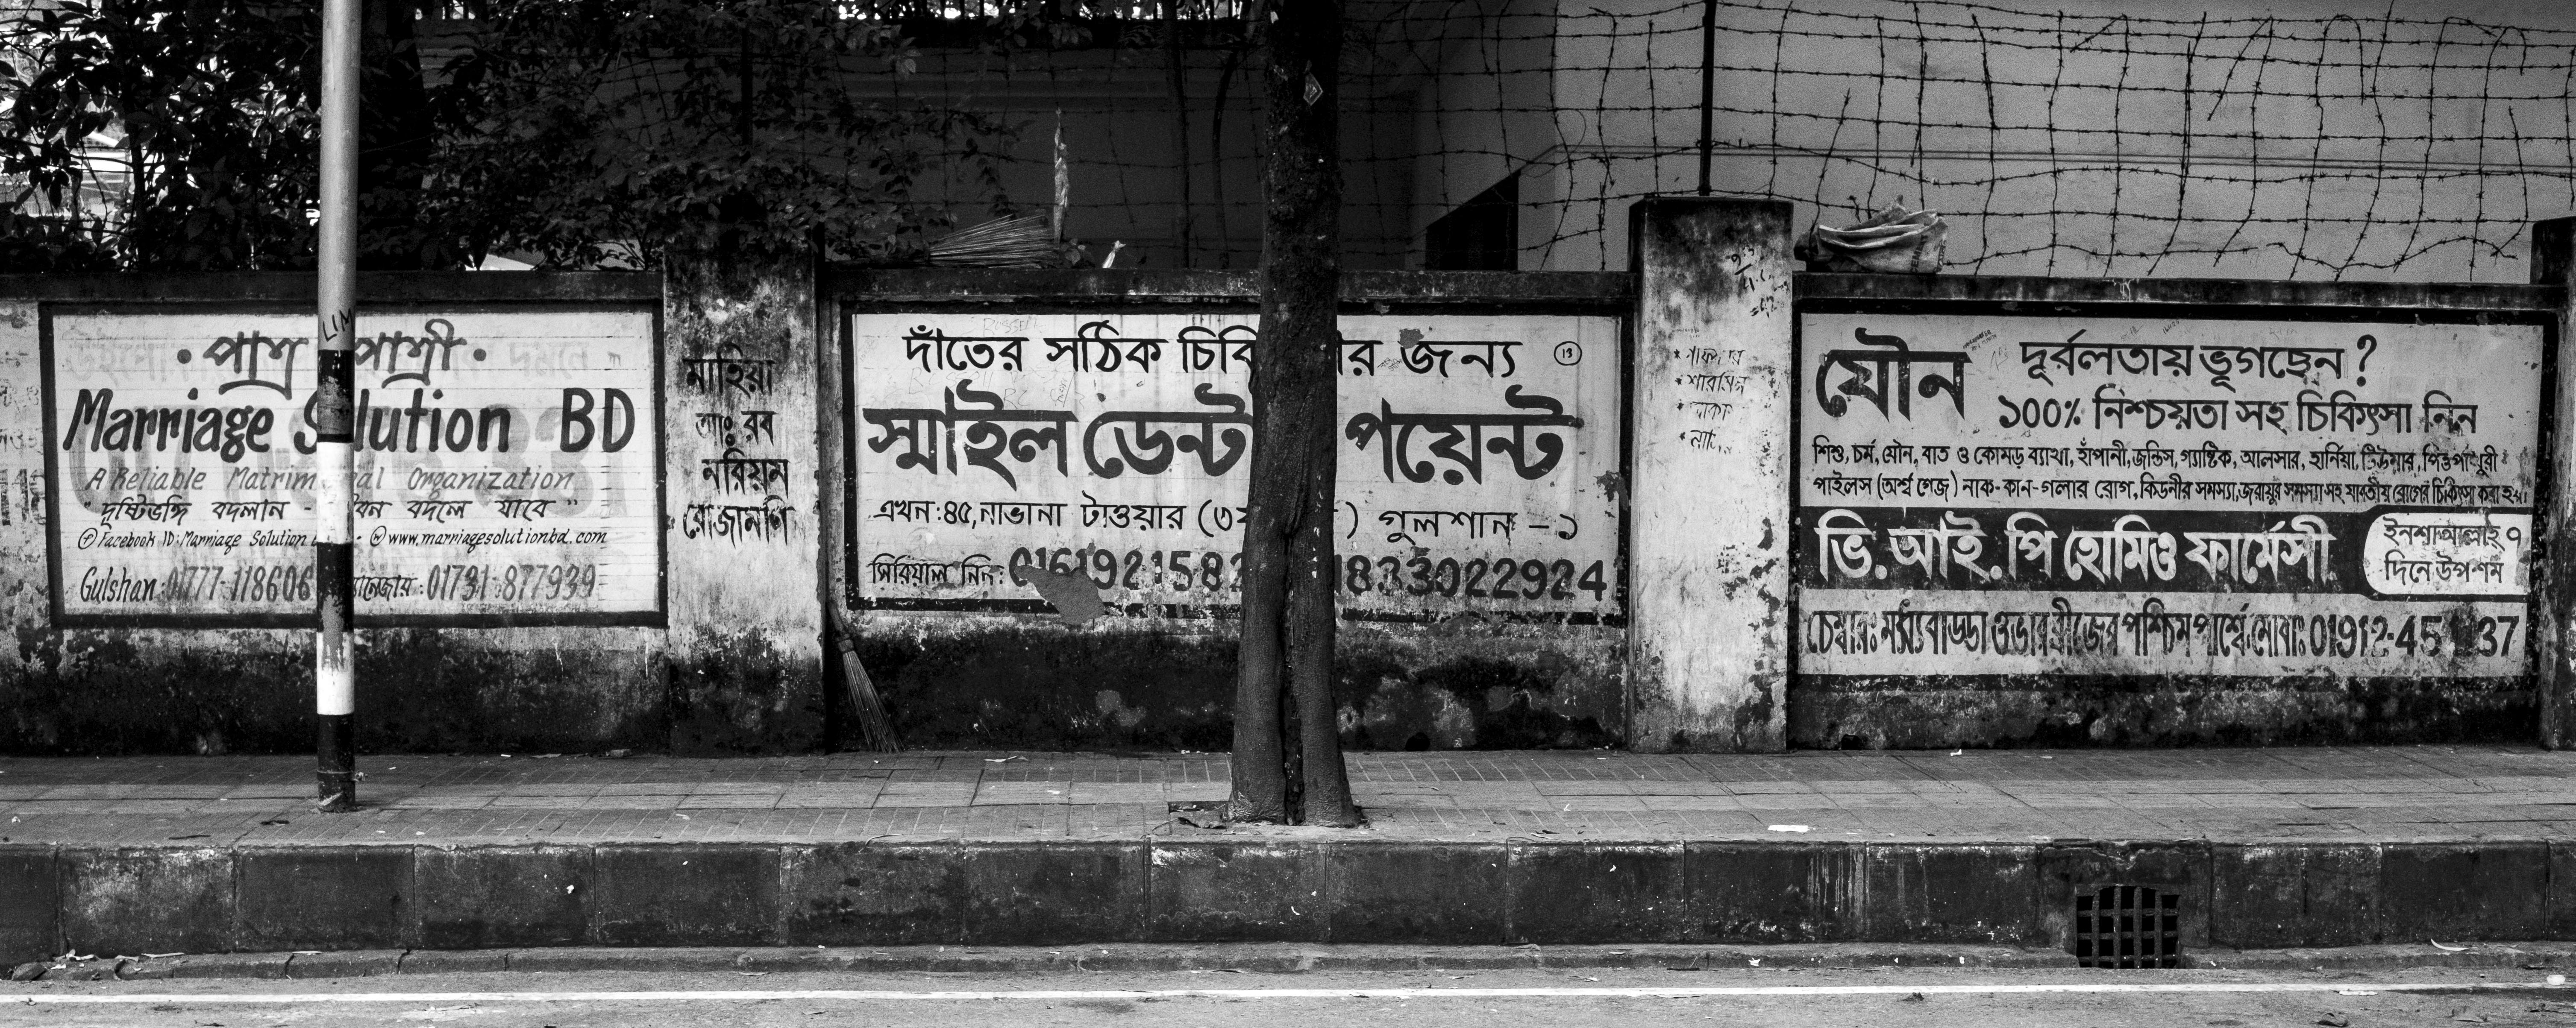 পাত্র পাত্রী
LIM
Marriage S lution BD
A Reliable Matrim Organization
"দৃষ্টিভঙ্গি বদলান - বন বদলে যাবে"
Facebook ID: Marriage Solution - www.marriagesolutionbd.com
Gulshan: 01777-118606 01731-877939
মাহিয়া
মোঃ রব
মরিয়ম
রোজামণি
দাঁতের সঠিক চিকি র জন্য 13
স্মাইল ডেন্ট পয়েন্ট
এখন:৪৫,নাভানা টাওয়ার (৩য় ) গুলশান - ১
সিরিয়াল নিন: 016192158 1833022924
যৌন দূর্বলতায় ভূগছেন?
১০০% নিশ্চয়তা সহ চিকিৎসা নিন
শিশু, চর্ম, যৌন, বাত ও কোমড় ব্যাথা, হাঁপানী, জন্ডিস, গ্যাষ্টিক, আলসার, হার্নিয়া, টিউমার, পিত্তপাথুরী
পাইলস (অর্শ্ব গেজ) নাক-কান-গলার রোগ, কিডনীর সমস্যা, জরায়ুর সমস্যা সহ যাবতীয় রোগের চিকিৎসা করা হয়।
ভি.আই.পি হোমিও ফার্মেসী
ইনশাআল্লাহ ৭
দিনে উপশম
চেম্বারঃ মধ্যবাড্ডা ওভারব্রীজের পশ্চিম পার্শ্বে মোবাঃ 01912-45 37